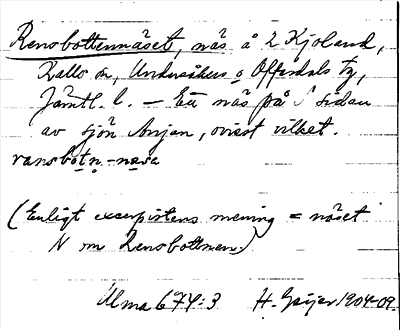 Rensbottennäset, näs å L Kjoland,
Kalls sn, Undersåkers o Offerdals tg,
Jämtl. l. – Ett näs på S sidan
av sjön Anjan, ovisst vilket.
ransbotn-nasa
(Enligt excerpistens mening = näset
N om Rensbottnen.)
Ulma 674:3 H. Geijer 1904-09.